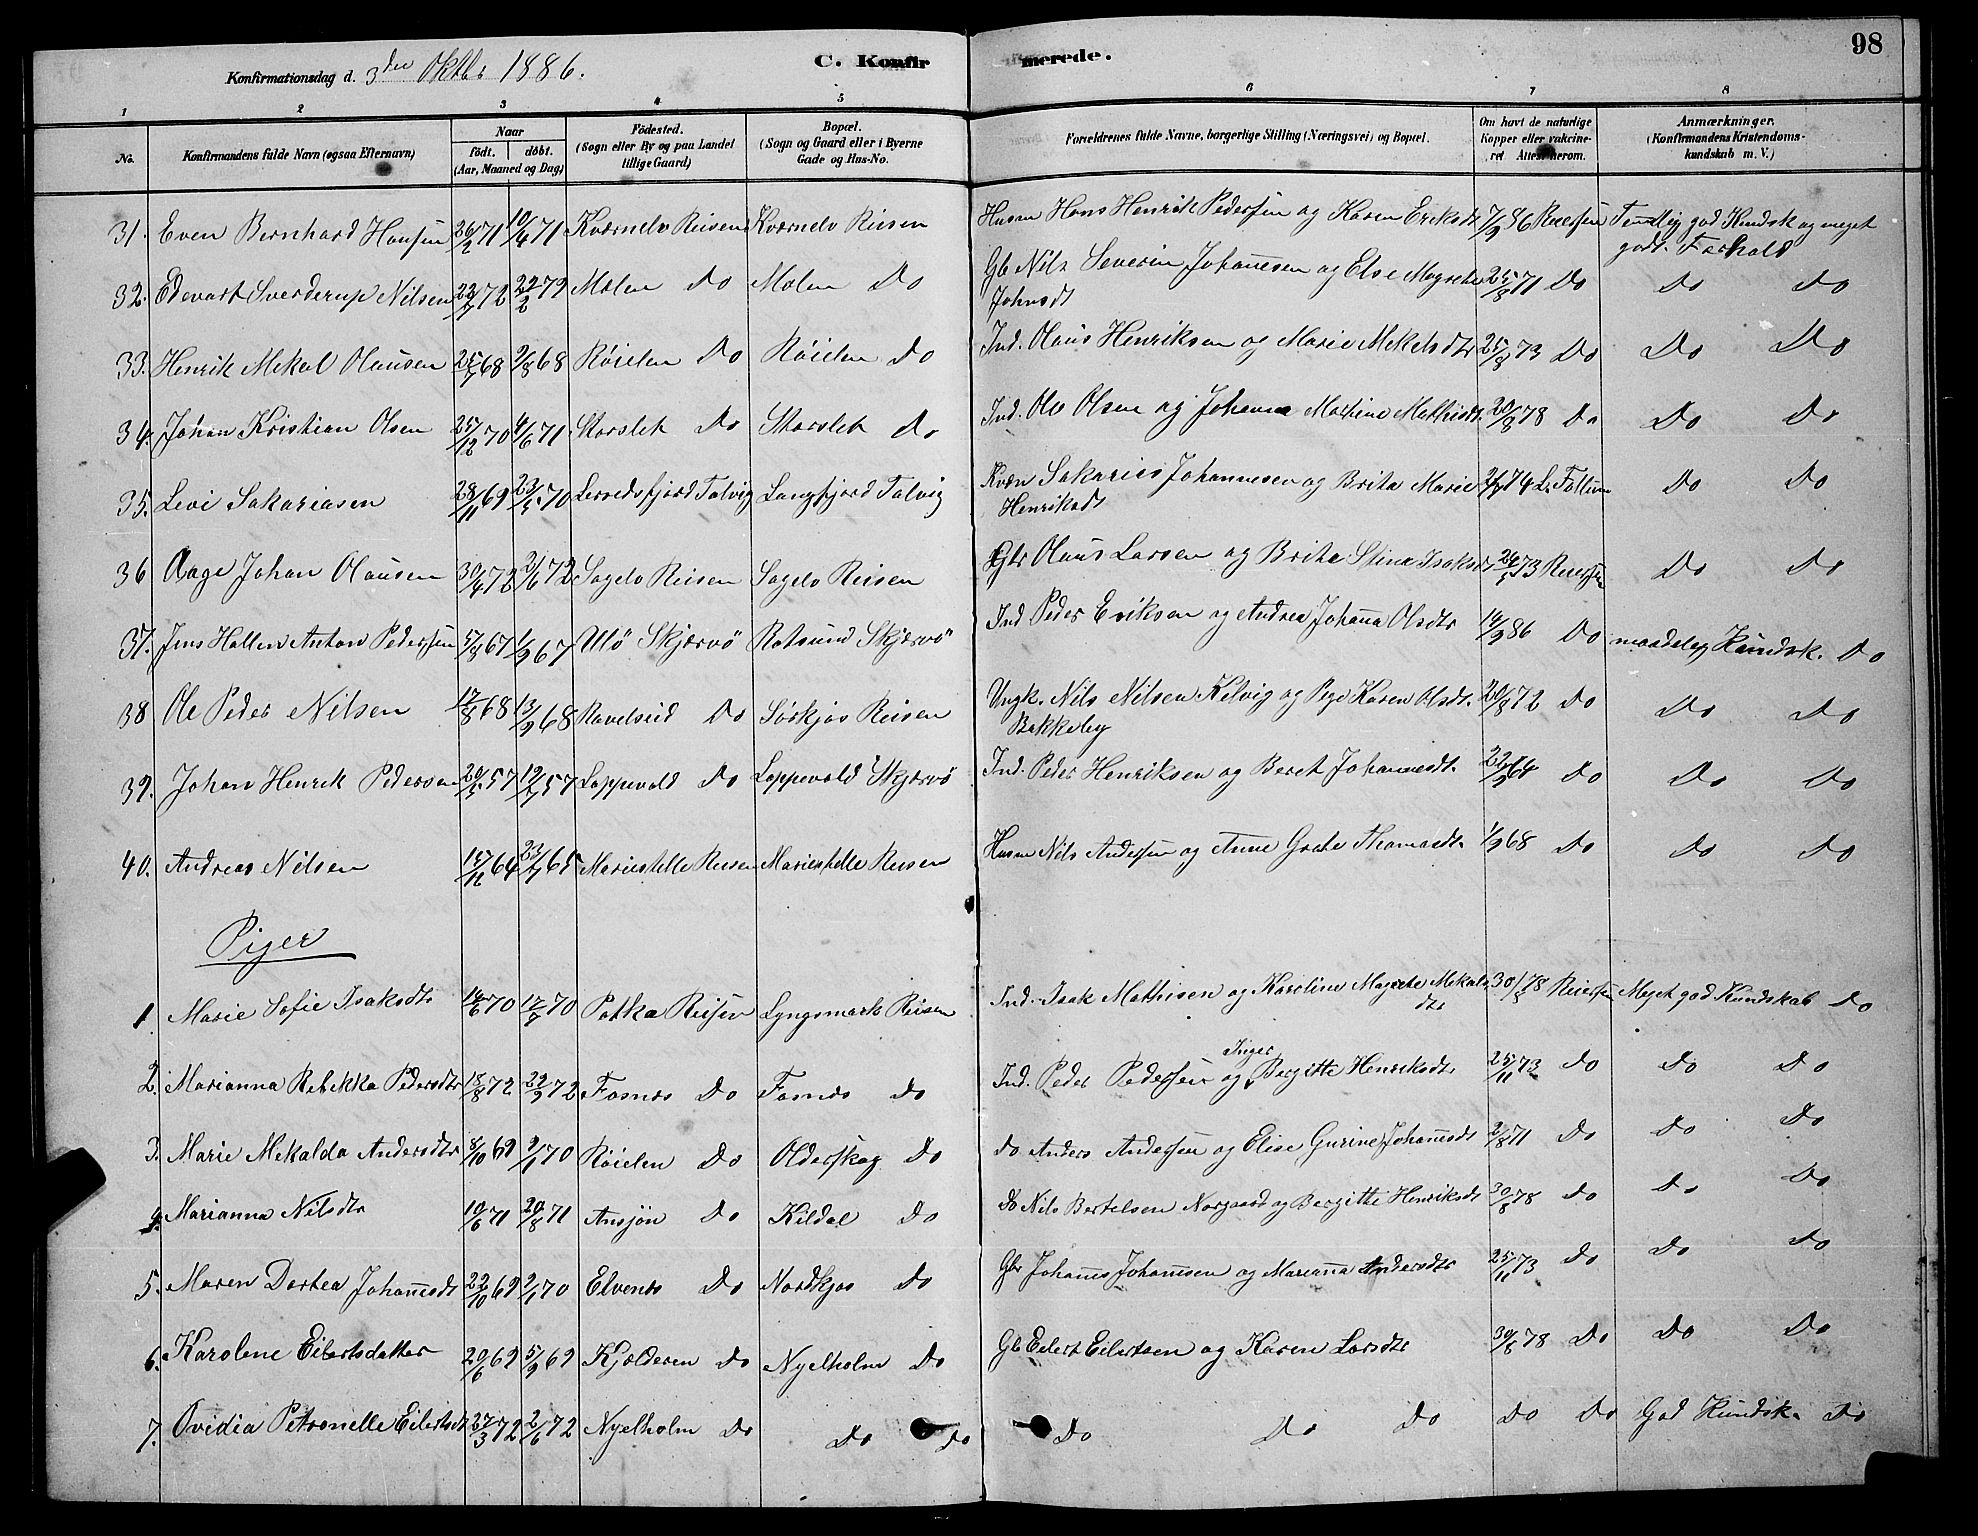 Konfirmationsdag d. 3die Oktbr 1886. C. Konfir merede. 98
1 2 3 4 5 6 7 8
No. Konfirmandens fulde Navn (ogsaa Efternavn) Naar födt. döbt. (Aar, Maaned og Dag) Födested. (Sogn eller By og paa Landet tillige Gaard) Bopæl. (Sogn og Gaard eller i Byerne Gade og Hus-No. Forældrenes fulde Navne, borgerlige Stilling (Næringsvei) og Bopæl. Om havt de naturlige Kopper eller vakcineret Attest derom. Anmærkninger. (Konfirmandens Kristendomskundskab m. V.)
31. Even Bernhard Hansen 26/2 71 10/4 71 Kværnelv Reisen Kværnelv Reisen Husm Hans Henrik Pedersen og Karen Eriksdt 7/9 86 Reiersen Temlig god Kundsk og meget
godt Forhold
32. Edevart Sverderup Nilsen 22/1 72 22/2 72 Molen Do Molen Do Gb Nils Severin Johannesen og Else Magrete 25/8 71 Do Do Do
Johnsdt
33. Henrik Mekal Olausen 25/7 68 9/8 68 Röielen Do Röielen Do Ind. Olaus Henriksen og Marie Mekelsdtr 25/8 73 Do Do Do
34. Johan Kristian Olsen 25/12 70 4/6 71 Storslet Do Storslet Do Ind. Ole Olsen og Johanna Martine Mathisdt. 20/8 78 Do Do Do
35. Levi Sakariasen 28/11 69 23/5 70 Lerredsfjord Talvig Langfjord Talvig Kvæn Sakarias Johannesen og Brita Marie 2/7 74 L. Fottum Do Do
Henriksdt
36 Aage Johan Olausen 30/4 72 2/6 72 Sagelv Reisen Sagelv Reisen Gbr Olaus Larsen og Brita Stina Isaksd 26/5 73 Reiersen Do Do
37. Jens Hallen Anton Pedersen 5/3 67 1/9 67 Ulö Skjærvö Rotsund Skjærvö Ind Peder Eriksen og Andrea Johanna Olsdtr 14/9 86 Do maadelig Kundsk. Do
38 Ole Peder Nilsen 17/8 68 13/9 68 Ravelseid Do Sörkjos Reisen Ungk. Nils Nilsen Kelvig og Pige Karen Olsdt. 20/8 72 Do Do Do
Bakkeby
39. Johan Henrik Pedersen 20/5 57 12/7 57 Loppevold Do Loppevold Skjærvö Ind. Peder Henriksen og Beret Johannesdt. 22/9 64 Do Do Do
40. Andreas Nilsen 15/12 64 23/7 65 Mariestelle Reisen Mariestelle Reisen Husm Nils Andersen og Anne Grete Thomasdt. 1/9 68 Do Do Do
Piger
1. Marie Sofie Isaksdtr 14/6 70 17/7 70 Potka Reisen Lyngsmark Reisen Ind. Isak Mathisen og Karoline Magrete Mekals 30/8 78 Reiersen Meget god Kundskab Do
dtr
2. Marianna Rebekka Pedersdtr 18/8 72 22/9 72 Fosnes Do Fosnes Do Ind. Peder Pedersen og Inger Bergitte Henriksdtr 25/11 73 Do Do Do
3. Marie Mekalda Andersdtr 8/10 69 9/1 70 Röielen Do Olderskog Do Do Anders Andersen og Elise Gurine Johansdt 2/8 71 Do Do Do
4. Marianna Nilsdtr 10/6 71 20/8 71 Ansjön Do Kildal Do Do Nils Bertelsen Norgaard og Bergitte Henriksdt 30/8 78 Do Do Do
5. Maren Dortea Johannesdt 22/10 69 9/1 70 Elvenes Do Nordkjos Do Gbr Johannes Johannesen og Marianna Andersdtr 25/11 73 Do Do Do
6. Karoline Eilertsdatter 20/6 69 5/9 69 Kjelderen Do Nyelholm Do Gb Eilert Eilertsen og Karen Larsdtr 30/8 78 Do Do Do
7. Ovidia Petronelle Eilertsdt 27/3 72 2/6 72 Nyelholm Do Do Do Do Do Do Do Do God Kundsk. Do